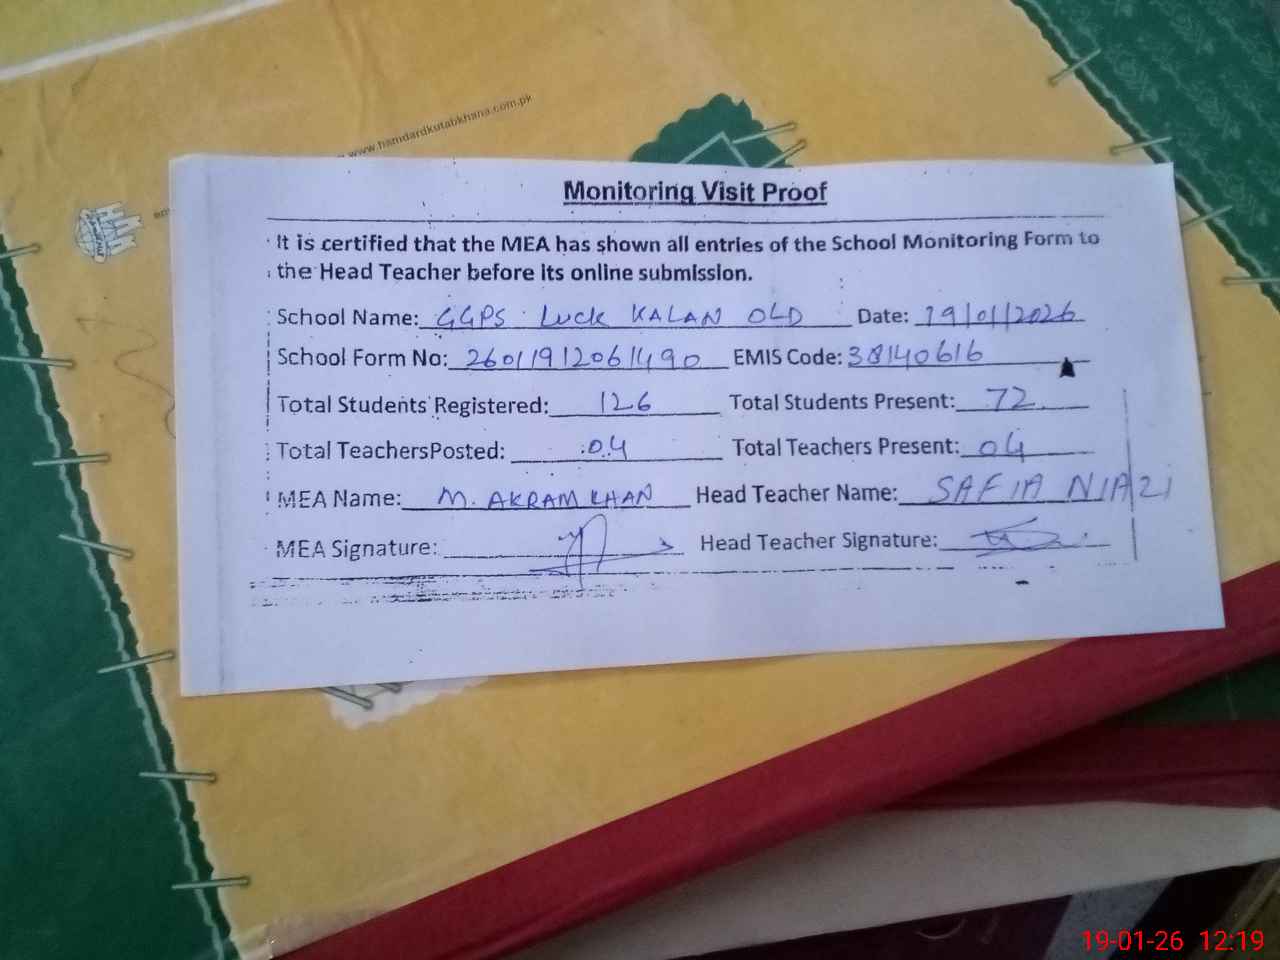 www.hamdardkutabkhana.com.pk
Monitoring Visit Proof
It is certified that the MEA has shown all entries of the School Monitoring Form to
the Head Teacher before its online submission.
School Name: GGPS Luck KALAN OLD Date: 19/01/2026
School Form No: 26011912061490 EMIS Code: 38140616
Total Students Registered: 126 Total Students Present: 72
Total TeachersPosted: 04 Total Teachers Present: 04
MEA Name: M. AKRAM KHAN Head Teacher Name: SAFIA NIAZI
MEA Signature: Head Teacher Signature:
19-01-26 12:19